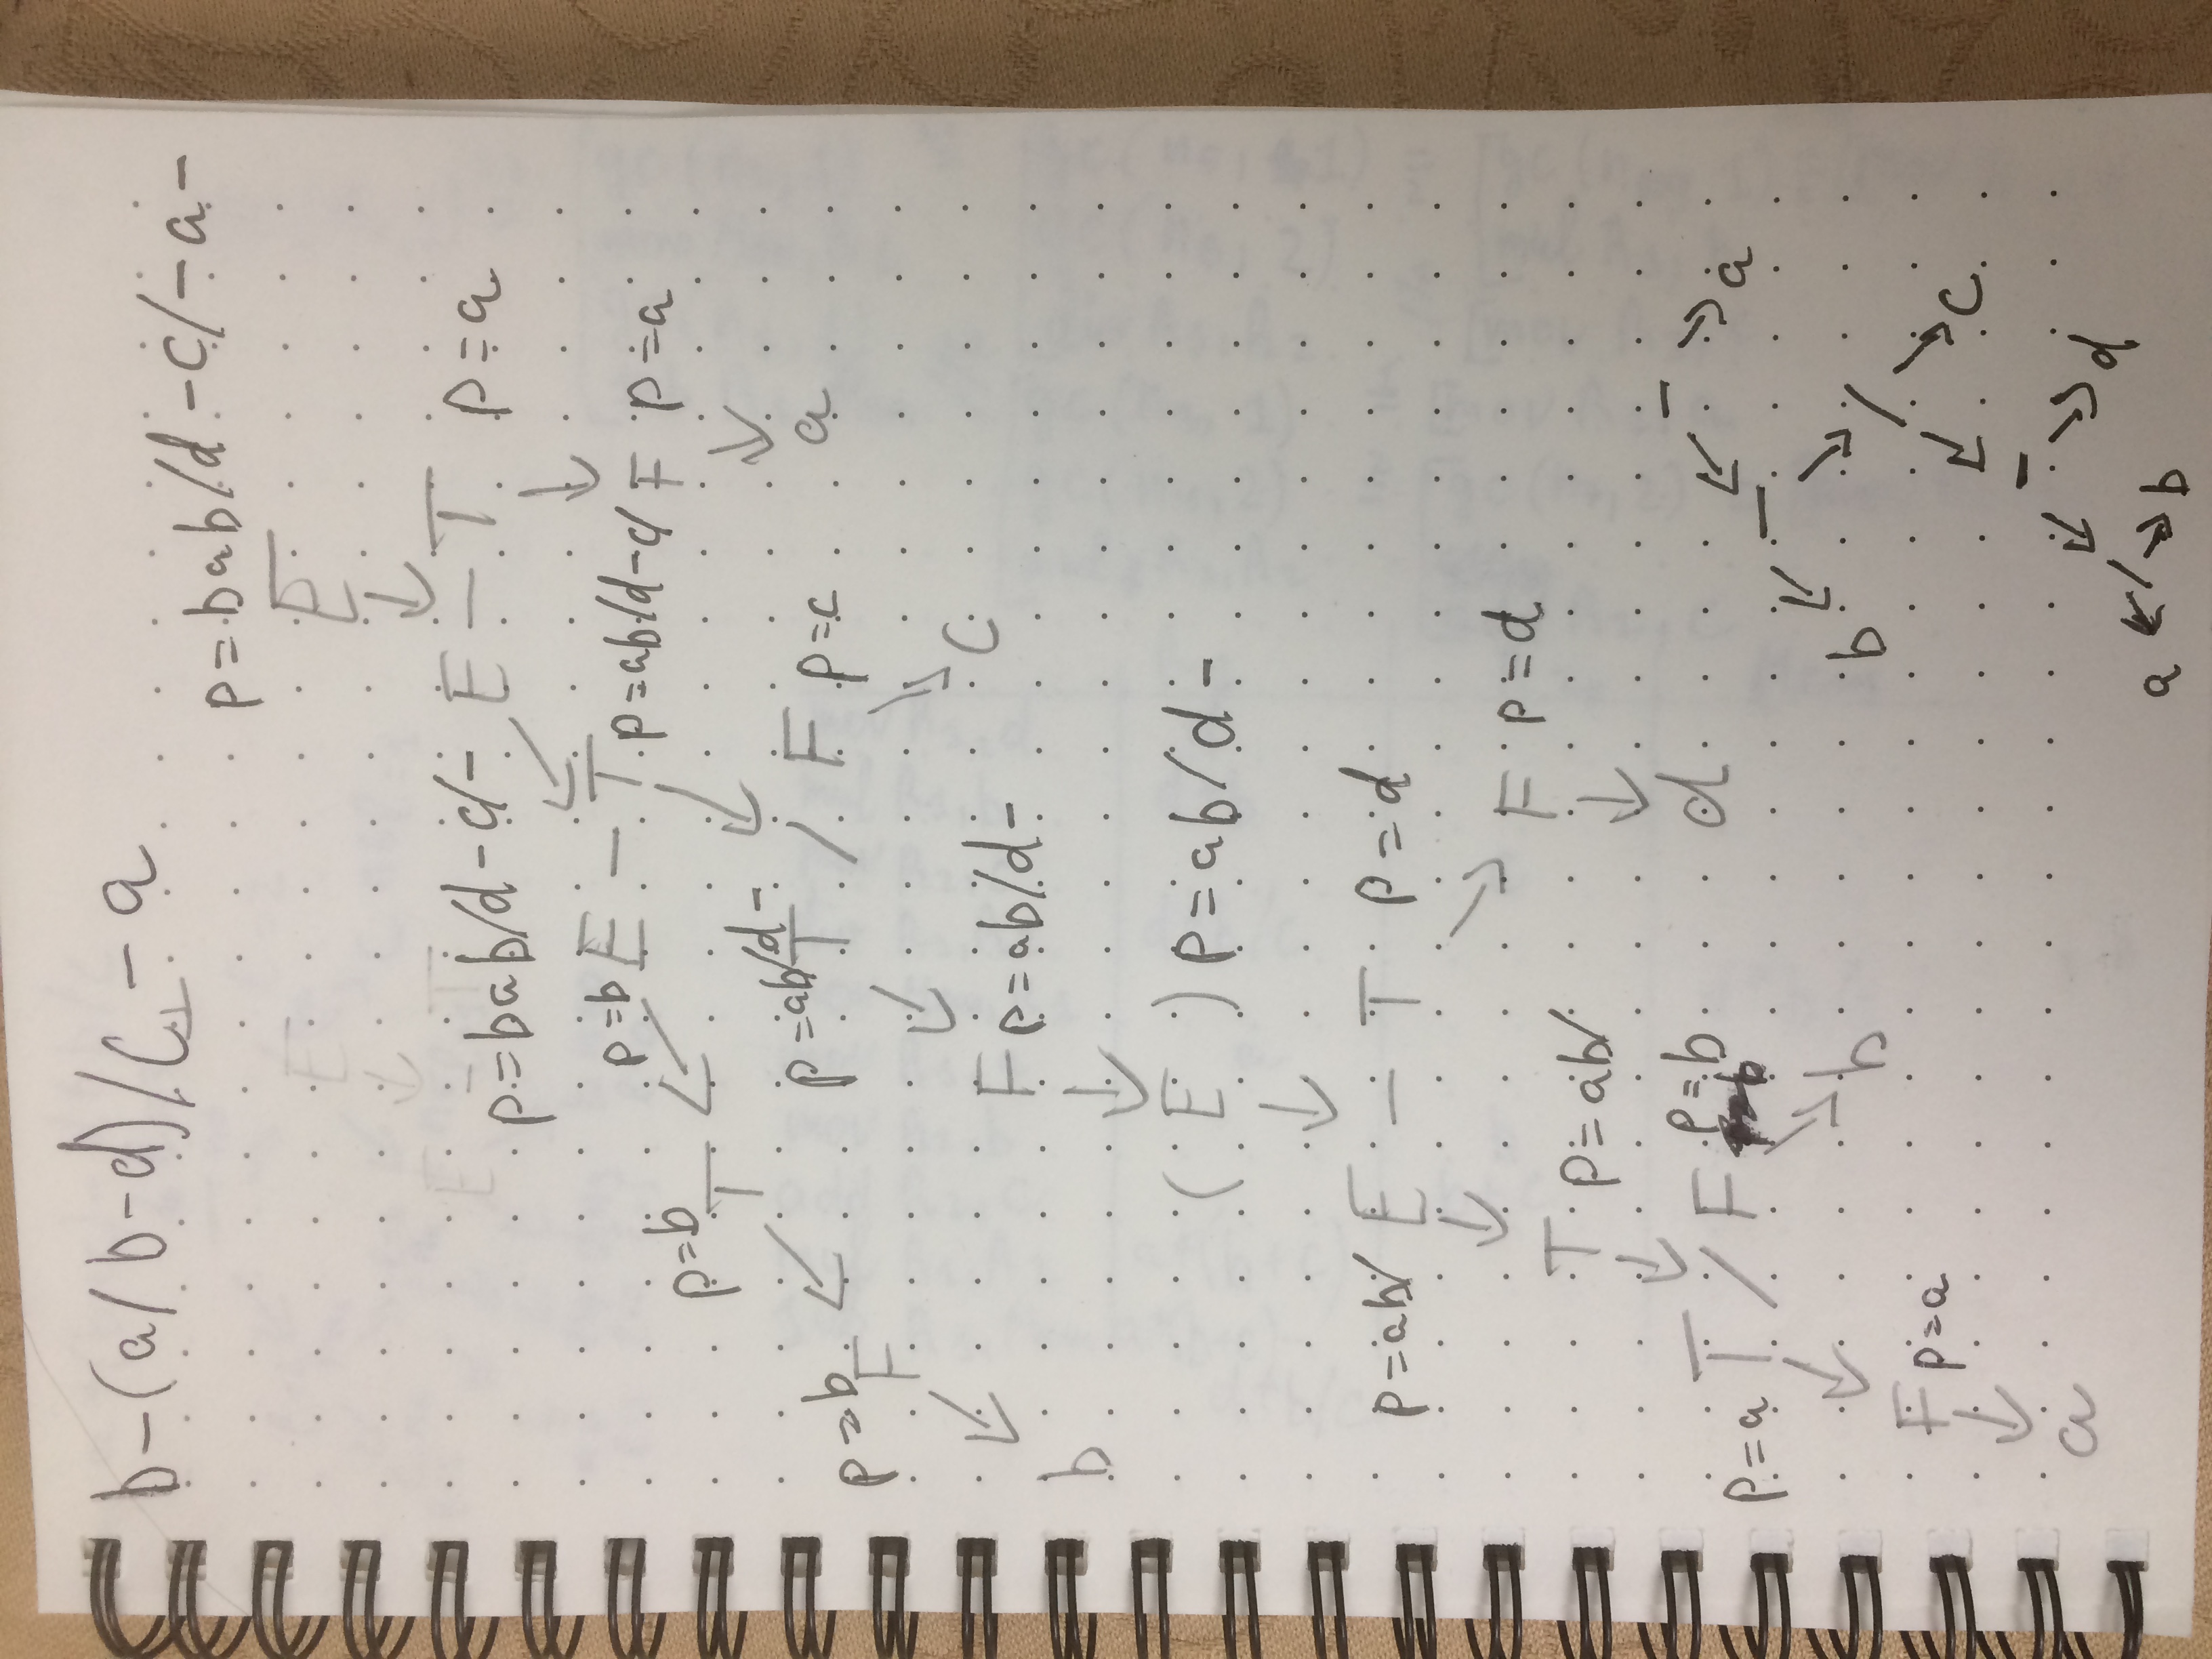 b-(a/b-d)/c - a
p=bab/d-c/-a-
E
E - T p=a
p=bab/d-c/-
p=b E - T p=ab/d-c/ F p=a
p=b T
p=ab/d- T / F p=c a
p=b F
b F p=ab/d- c
( E ) p=ab/d-
p=ab/ E - T p=d
T p=ab/ F p=d
p=a T / F p=b d
F p=a b
a
- a
b - / c
- d
a / b